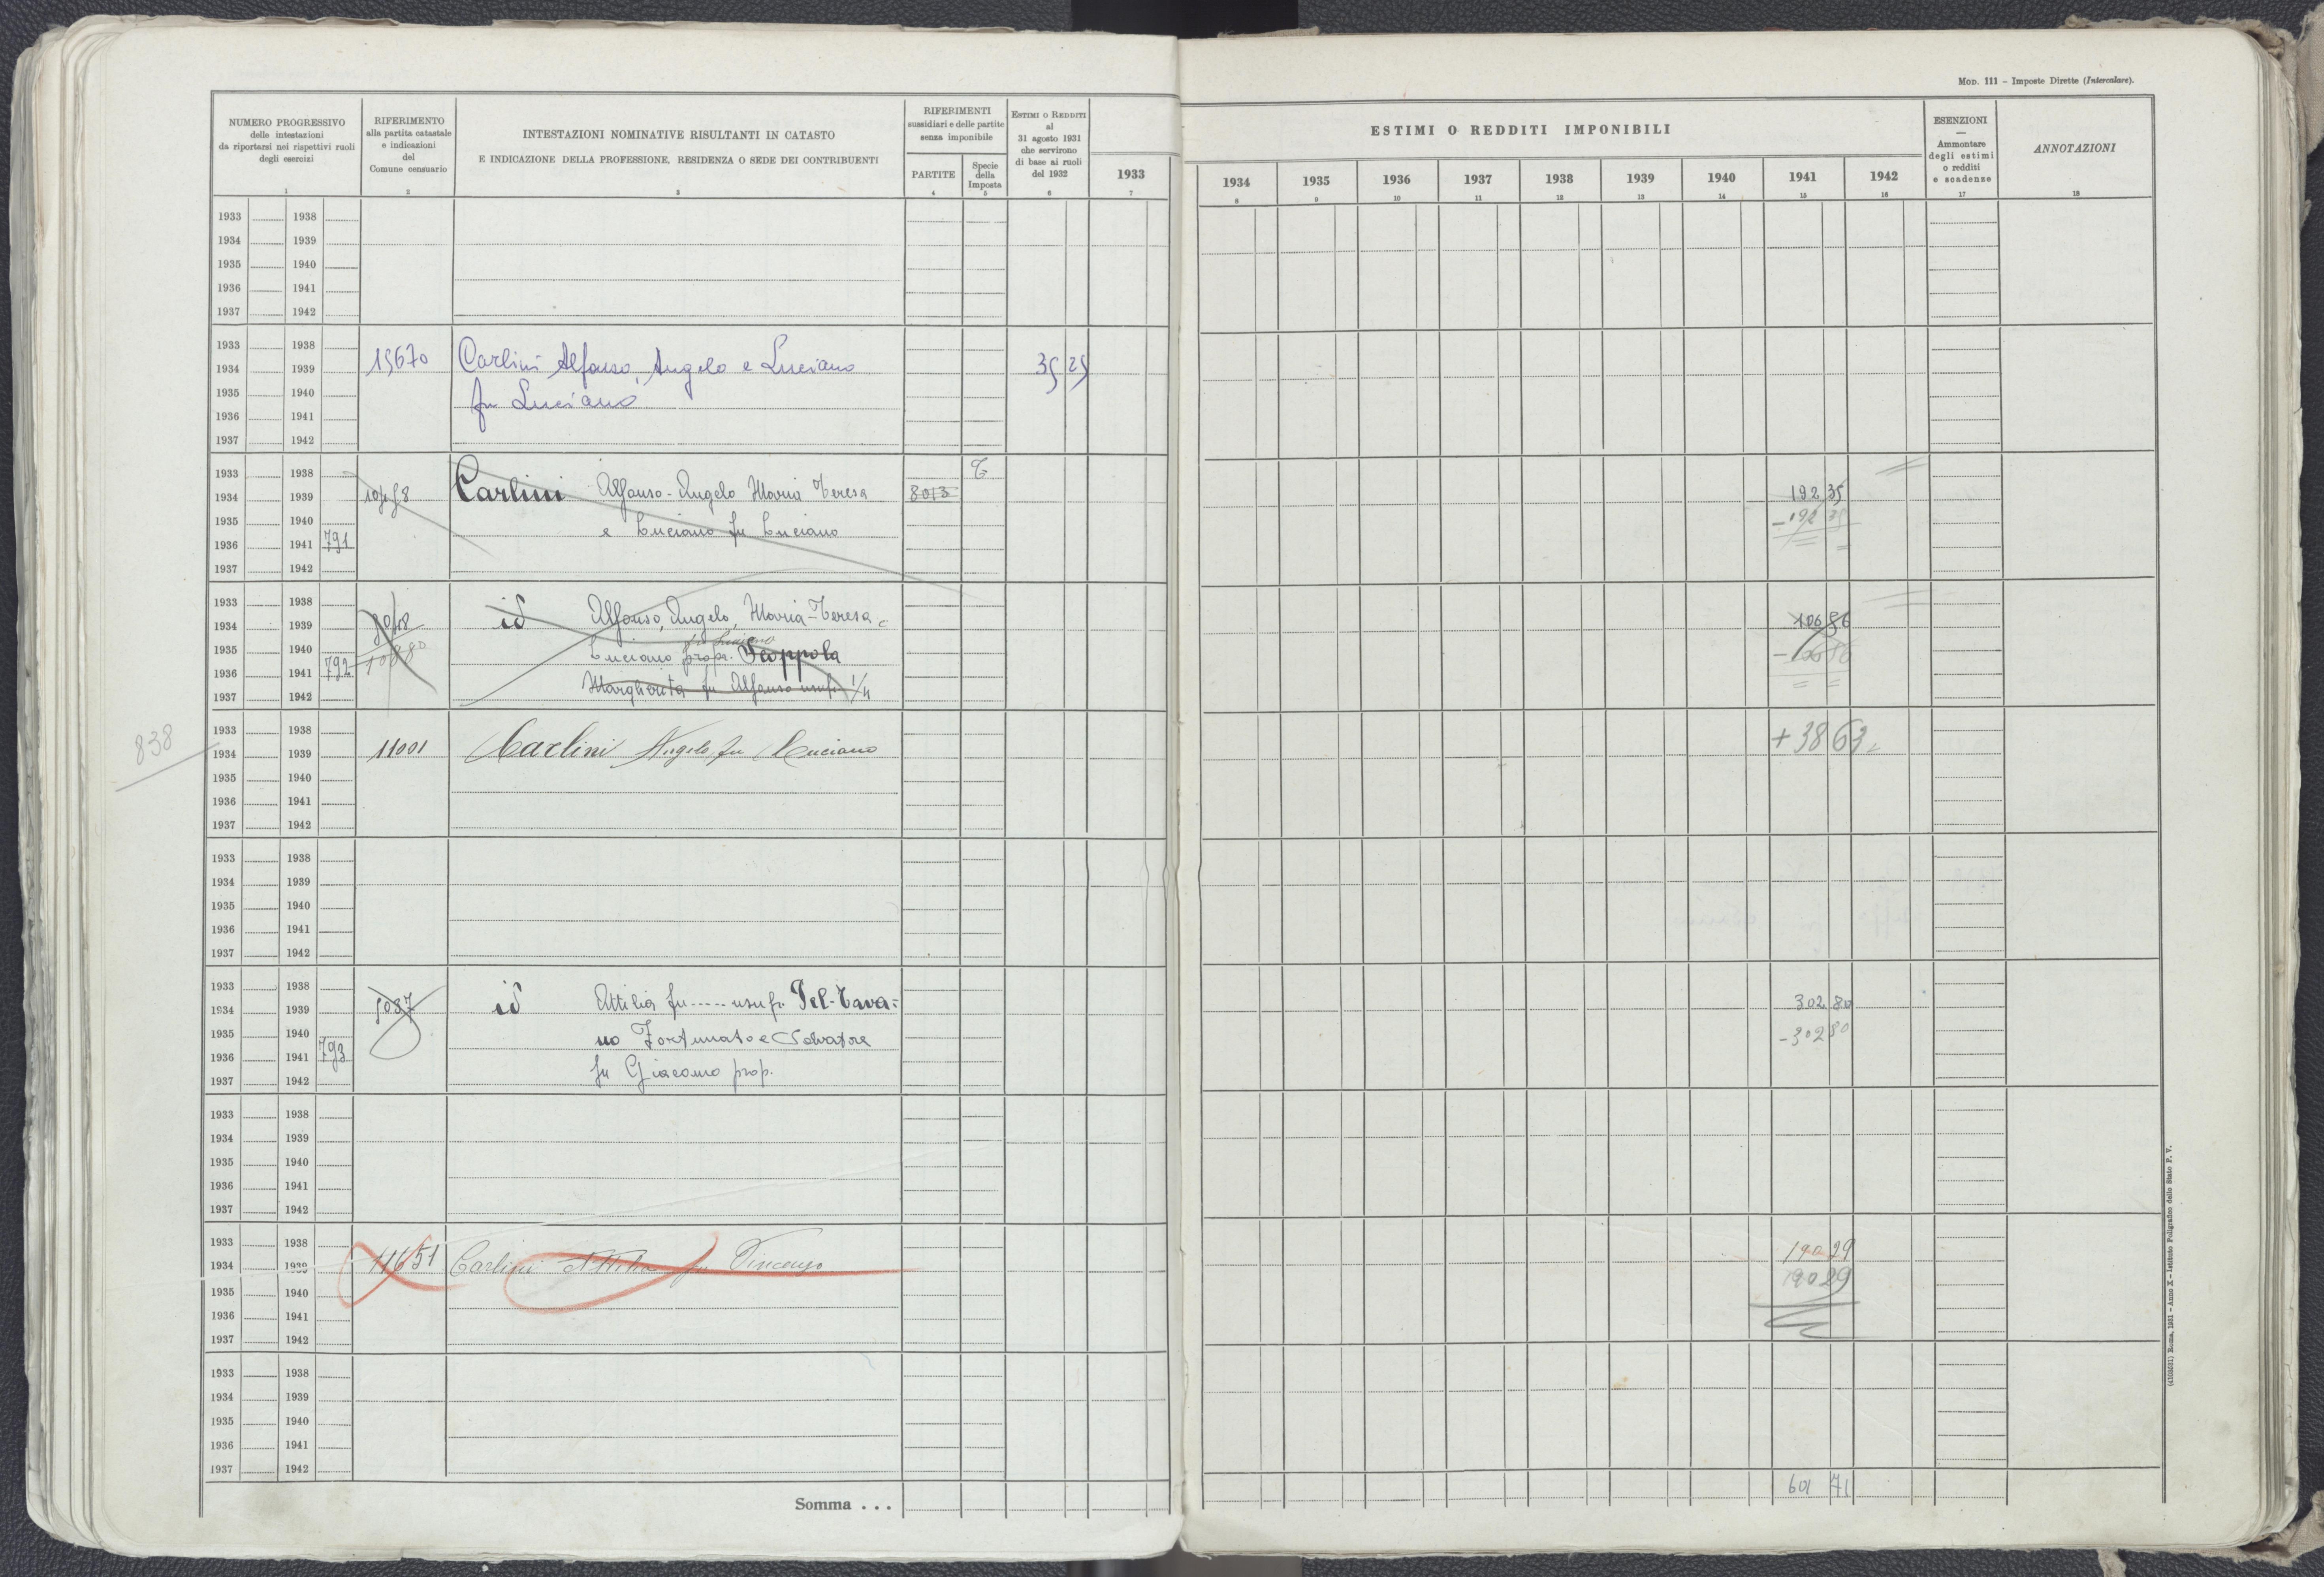 Mod. 111 - Imposte Dirette (Intercalare).
NUMERO PROGRESSIVO
delle intestazioni
da riportarsi nei rispettivi ruoli
degli esercizi
1
RIFERIMENTO
alla partita catastale
e indicazioni
del
Comune censuario
2
INTESTAZIONI NOMINATIVE RISULTANTI IN CATASTO
E INDICAZIONE DELLA PROFESSIONE, RESIDENZA O SEDE DEI CONTRIBUENTI
3
RIFERIMENTI
sussidiari e delle partite
senza imponibile
PARTITE
4
Specie
della
Imposta
5
Estimi o Redditi
al
31 agosto 1931
che servirono
di base ai ruoli
del 1932
6
ESTIMI O REDDITI IMPONIBILI
1933 1934 1935 1936 1937 1938 1939 1940 1941 1942
7 8 9 10 11 12 13 14 15 16
ESENZIONI
—
Ammontare
degli estimi
o redditi
e scadenze
17
ANNOTAZIONI
18
1933 1938
1934 1939
1935 1940
1936 1941
1937 1942
1933 1938
1934 1939 15670 Carlini Alfonso, Angelo e Luciano 35 25
1935 1940 fu Luciano
1936 1941
1937 1942
1933 1938
1934 1939 Carlini Alfonso-Angelo Maria Teresa 8013 192 35
1935 1940 e Luciano fu Luciano -192 35
1936 1941 791
1937 1942
1933 1938
1934 1939 id Alfonso, Angelo, Maria-Teresa e 106 86
fu Luciano
1935 1940 Luciano propr. Scoppola
1936 1941 792 Margherita fu Alfonso usufr. 1/4
1937 1942
838
1933 1938
1934 1939 11001 Carlini Angelo fu Luciano +38 63
1935 1940
1936 1941
1937 1942
1933 1938
1934 1939
1935 1940
1936 1941
1937 1942
1933 1938
1934 1939 5037 id Attilia fu ----- usufr. Del-Tava= 302 80
1935 1940 no Fortunato e Salvatore -302 80
1936 1941 793 fu Giacomo prop.
1937 1942
1933 1938
1934 1939
1935 1940
1936 1941
1937 1942
1933 1938
1934 1939 11651 Carlini Attilia fu Vincenzo 190 29
1935 1940 190 29
1936 1941
1937 1942
1933 1938
1934 1939
1935 1940
1936 1941
1937 1942
Somma . . . 601 71
Roma, 1931 - Anno X - Istituto Poligrafico dello Stato P. V.